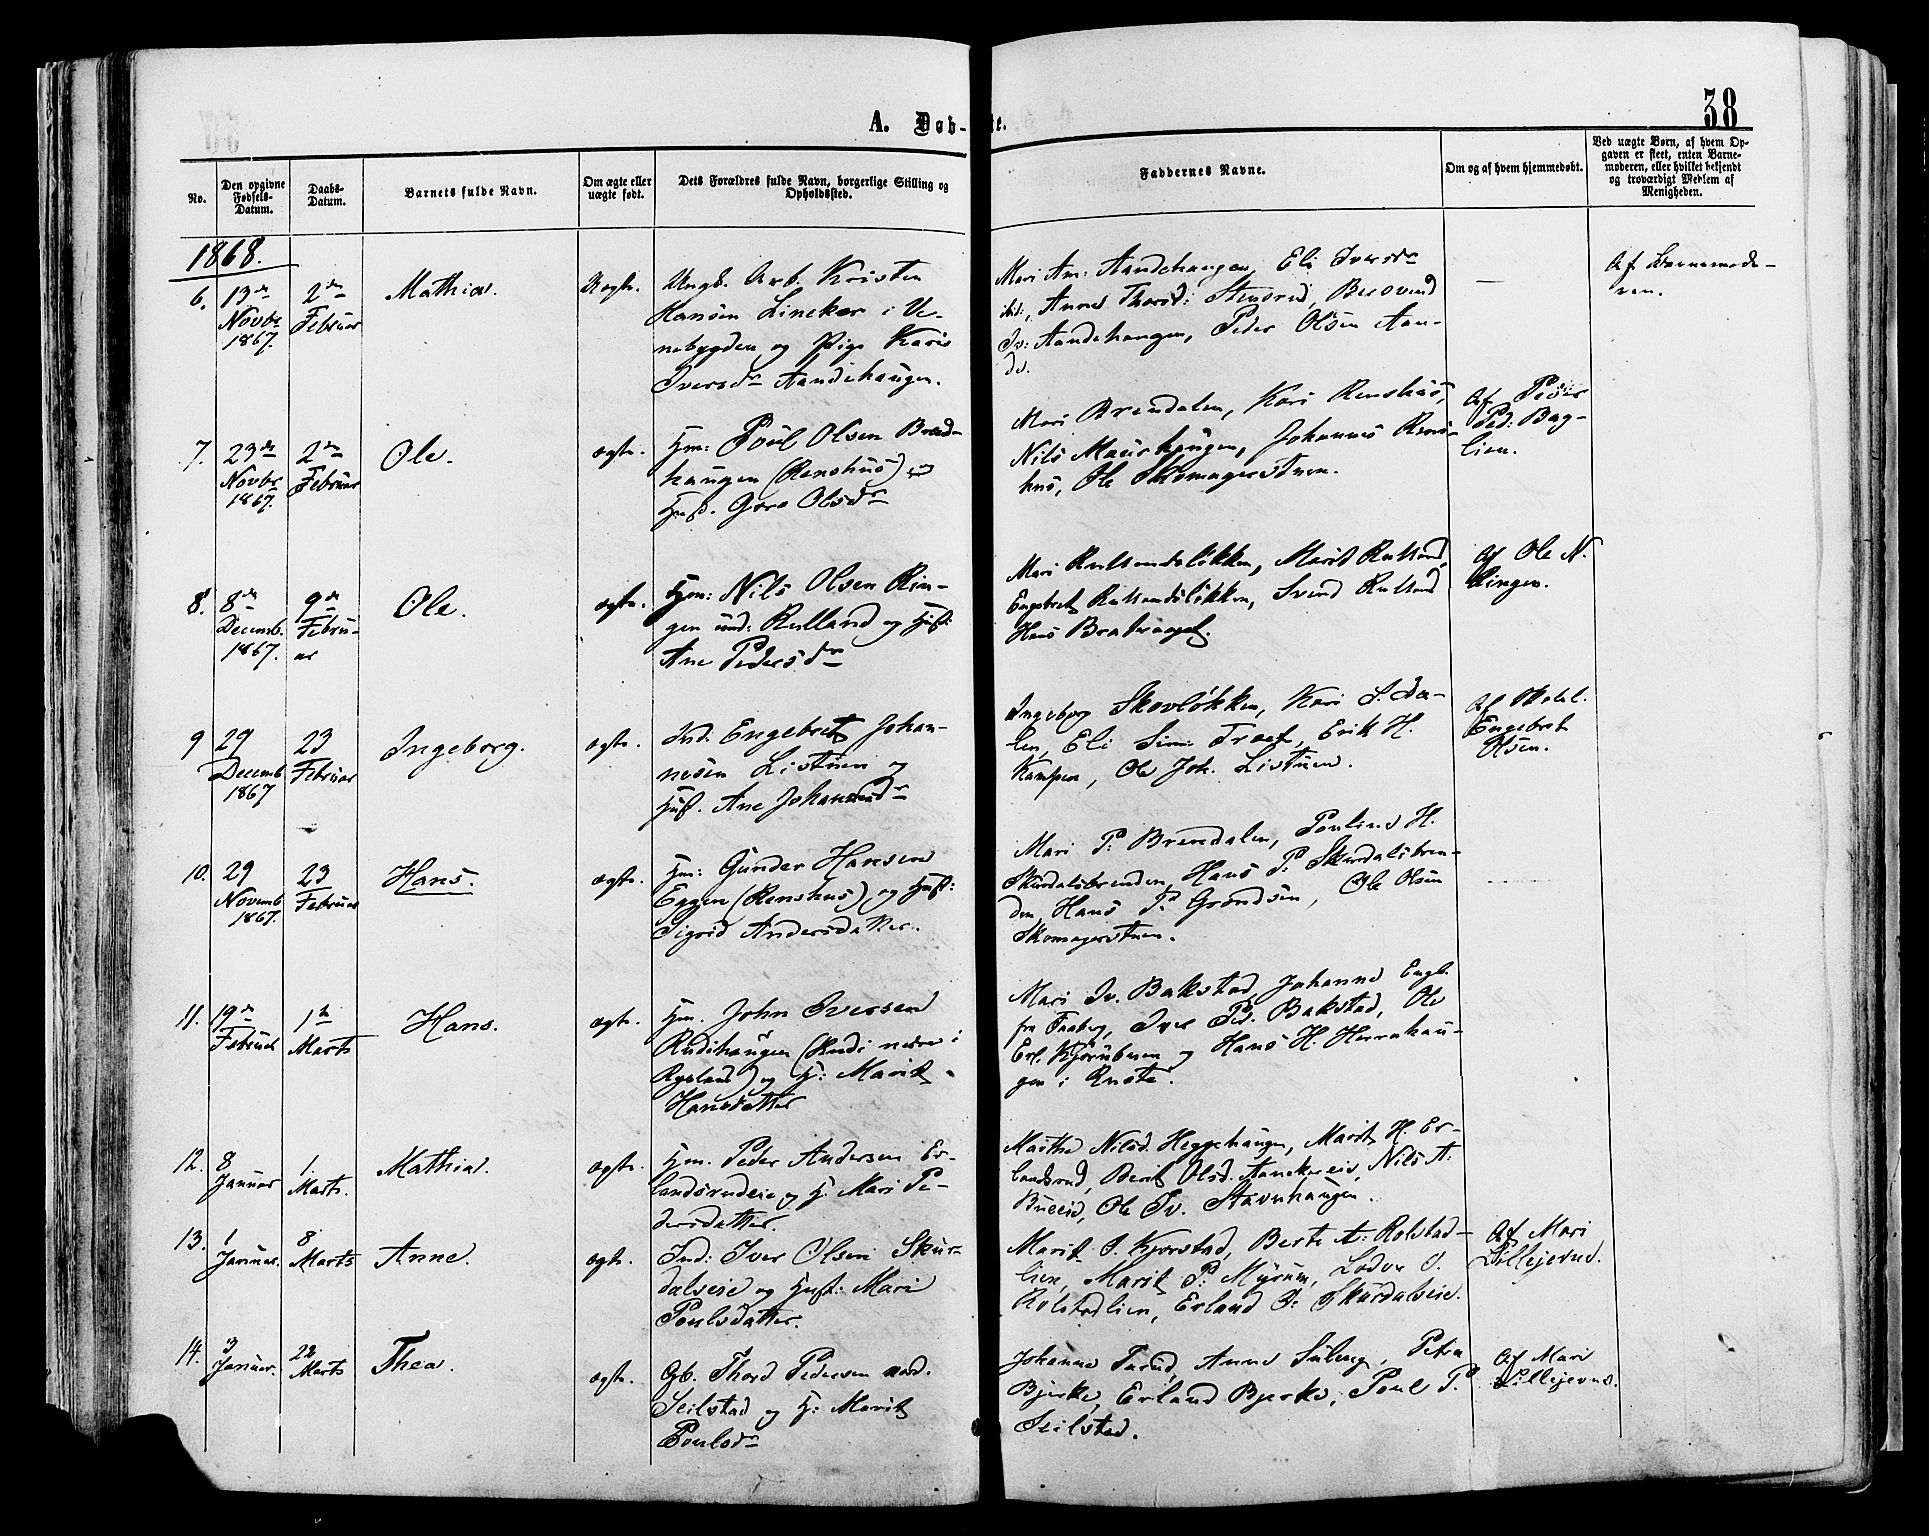 38
A. Døb-
te.
No.
Den opgivne Fødsels-Datum.
Daabs-Datum.
Barnets fulde Navn.
Om ægte eller uægte født.
Dets Forældres fulde Navn, borgerlige Stilling og Opholdssted.
Faddernes Navne.
Om og af hvem hjemmedøbt.
Ved uægte Børn, af hvem Opgaven er skeet, enten Barnemoderen, eller hvilket bekjendt og troværdigt Medlem af Menigheden.
1868.
6.
13de
Novbr
1867.
2den
Februar
Mathias.
Uægte.
Ungk. Arb. Kristen
Hansen Lineker i Ve-
nebygden og Pige Kari
Iversdr Aandehaugen.
Mari Am: Aandehaugen, Eli Iversdr
ibid:, Anne Thorsd: Stensrud,
Iv: Aandehaugen, Peder Olsen Aan-
de.
Af Barnemode-
ren.
7.
23de
Novbr
1867.
2den
Februar
Ole.
ægte.
Hm: Poul Olsen Bræd-
haugen (Renshus) og
Hust. Goro Olsdr
Mari Brendalen, Kari Renshus,
Nils Maurhaugen, Johannes Rens-
hus, Ole Skomagerstuen.
Af Peder
Ped: Bag-
lien.
8.
8de
Decemb.
1867.
9de
Febru-
ar
Ole.
ægte.
Hm: Nils Olsen Rin-
gen und: Rulland og Hust:
Ane Pedersdr
Mari Rullandsløkken, Marit Rulland,
Engebret Rullandsløkken, Svend Rulland
Hans Bratvaget.
Af Ole N.
Ringen.
9
29
Decemb
1867
23
Februar
Ingeborg.
ægte.
Ind. Engebret Johan-
nesen Listuen og
Hust. Ane Johannesdr
Ingeborg Skovløkken, Kari S. Da-
len, Eli Sim: Træet, Erik H.
Kampen, Ole Joh. Listuen.
Af
Engebret
Olsen.
10.
29
Novemb
1867.
23
Februar
Hans.
ægte.
Hm: Gunder Hansen
Eggen (Renshus) og Hust:
Sigrid Andersdatter.
Mari P: Brendalen, Pouline H.
Skurdalsbrenden, Hans P: Skurdalsbren-
den, Hans P. Grondsen, Ole Olsen
Skomagerstuen.
11.
19de
Februar
1ste
Marts
Hans.
ægte.
Hm. John Iversen
Rudihaugen (Rudi nedre i
Rysland) og H: Marit
Hansdatter
Mari Iv. Bakstad, Johanne Engb.
fra Faaberg, Iver Ped. Bakstad, Ole
Erl. Kjørnbuen og Hans H. Hernhau-
gen i Ruste.
12.
8
Januar
1.
Marts.
Mathias.
ægte.
Hm. Peder Andersen Er-
landsrudeie og H. Mari Pe-
dersdatter.
Marthe Nilsd. Heggehaugen, Marit H. Er-
landsrud, Berit Olsd. Aanekreie, Nils A.
Bueeie, Ole Iv. Stavnhaugen.
13.
1
Januar.
8
Marts
Anne.
ægte.
Ind: Iver Olsen Skur-
dalseie og Hust: Mari
Poulsdatter.
Marit I. Kjorstad, Berte A: Rolstad-
lien, Marit P: Myrum, Lodve I.
Rolstadlien, Erland O: Skurdalseie.
Af Mari
Lillejevne.
14.
3
Januar.
22
Marts
Thea.
ægte.
Gb. Thord Pedersen nord.
Seilstad og H: Marit
Poulsdr
Johanne Tarud, Anne Suleng, Petra
Bjerke, Erland Bjerke, Poul P.
Seilstad.
Af Mari
Lillejevne.